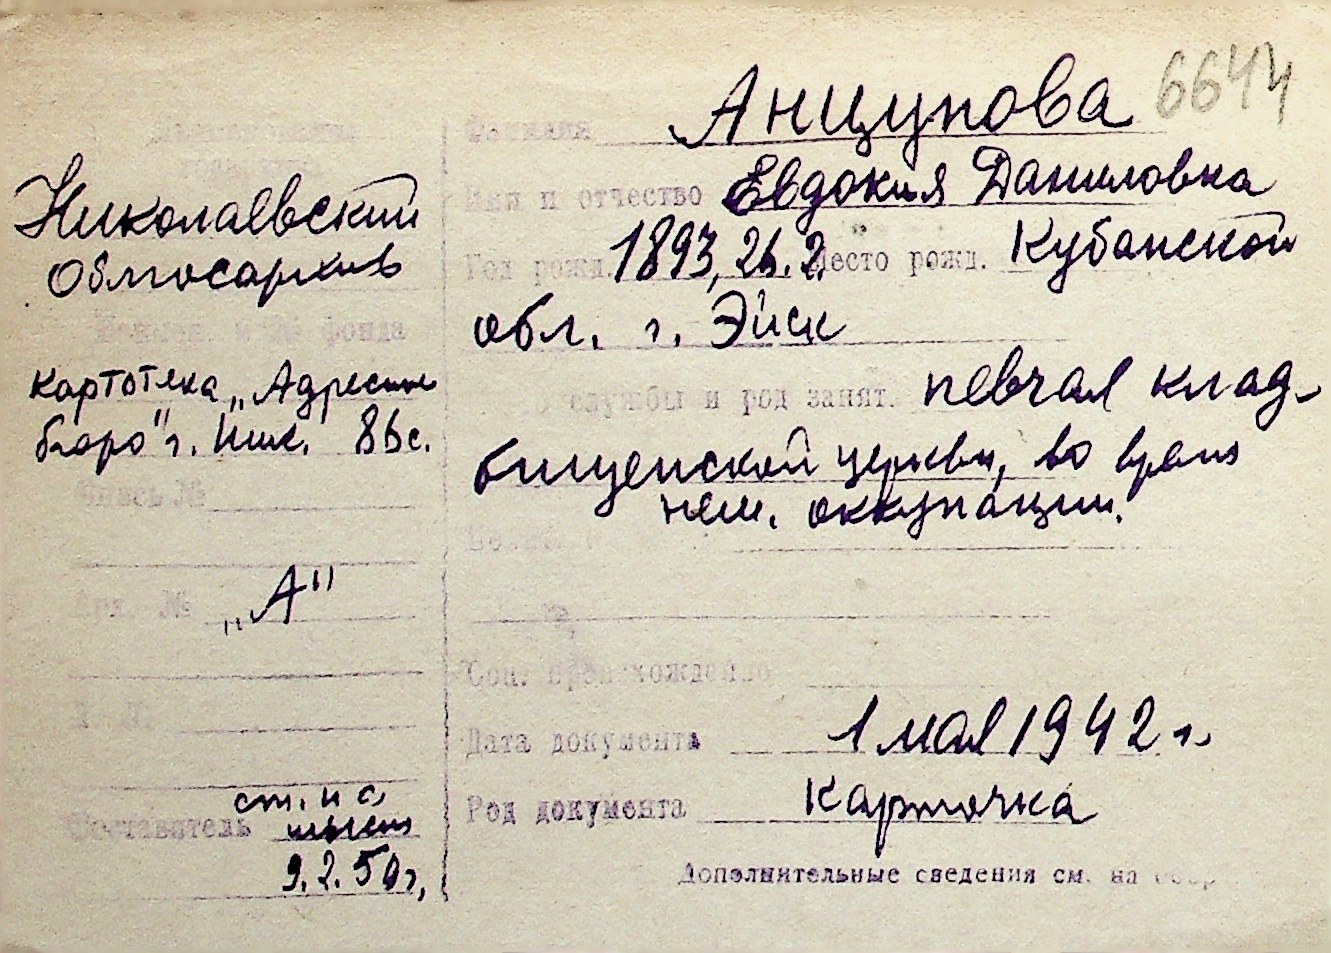 6644
Фамилия Анцупова
Имя и отчество Евдокия Даниловна
Год рожд. 1893, 26.2. Место рожд. Кубанской
обл. г. Эйск
службы и род занят. певчая клад-
бищенской церкви, во время
нем. оккупации.
Соц. происхождение
Дата документа 1 мая 1942 г.
Род документа Карточка
Дополнительные сведения см. на
Николаевский
Облгосархив
и № фонда
картотека „Адресн
бюро" г. Ник. 86с.
Опись №
„А"
Составитель ст. н с
9.2.50 г,